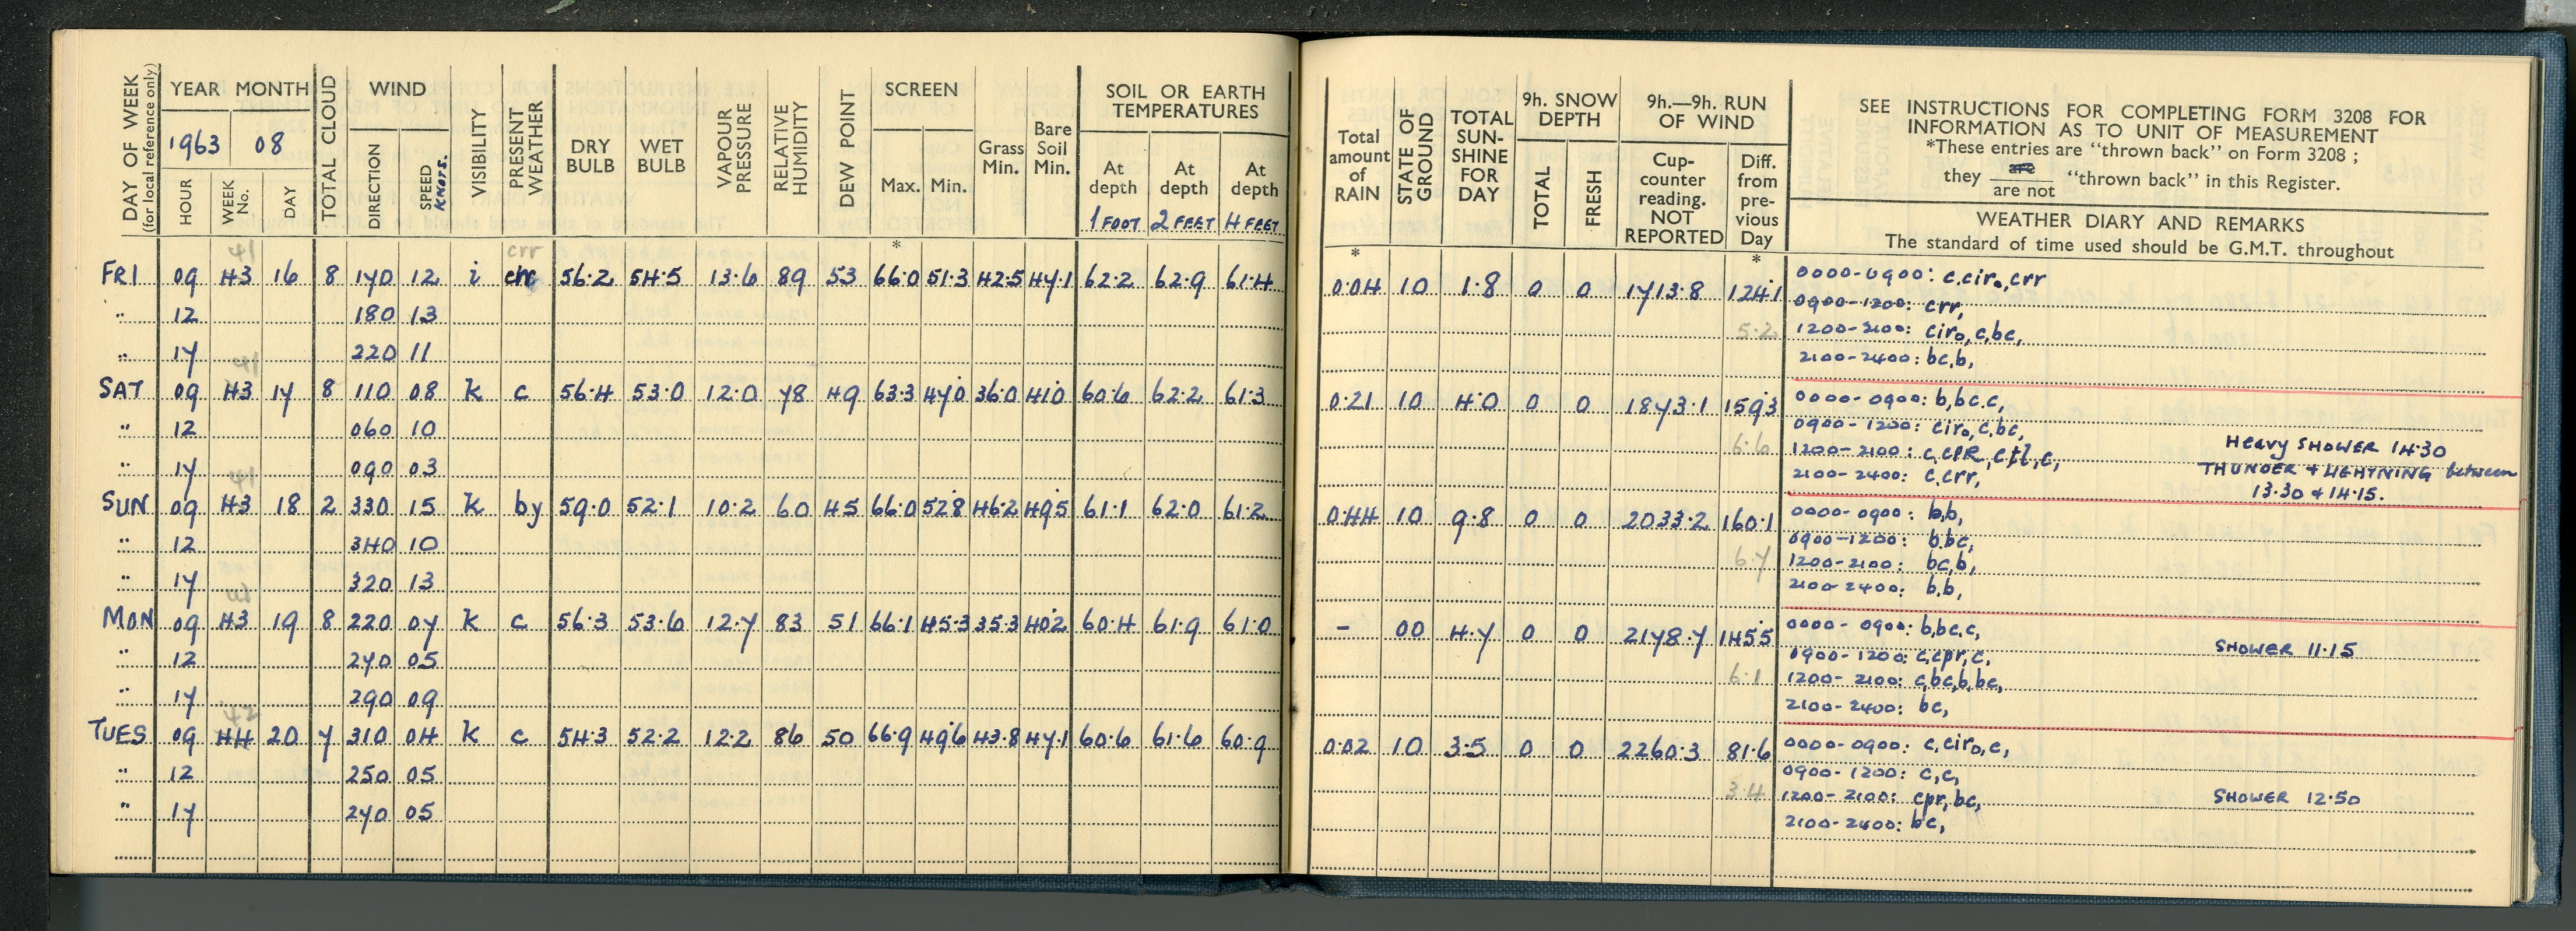 DAY OF WEEK (for local reference only)
YEAR MONTH
1963 08
HOUR WEEK No. DAY
TOTAL CLOUD
WIND
DIRECTION SPEED KNOTS.
VISIBILITY
PRESENT WEATHER
DRY BULB
WET BULB
VAPOUR PRESSURE
RELATIVE HUMIDITY
DEW POINT
SCREEN
Max. Min.
Grass Min.
Bare Soil Min.
SOIL OR EARTH TEMPERATURES
At depth 1 FOOT
At depth 2 FEET
At depth 4 FEET
Total amount of RAIN
STATE OF GROUND
TOTAL SUN-SHINE FOR DAY
9h. SNOW DEPTH
TOTAL FRESH
9h.—9h. RUN OF WIND
Cup-counter reading. NOT REPORTED
Diff. from pre-vious Day
SEE INSTRUCTIONS FOR COMPLETING FORM 3208 FOR
INFORMATION AS TO UNIT OF MEASUREMENT
*These entries are "thrown back" on Form 3208 ;
they are / are not "thrown back" in this Register.
WEATHER DIARY AND REMARKS
The standard of time used should be G.M.T. throughout
* * *
41 crr
FRI 09 43 16 8 170 12 i 56.2 54.5 13.6 89 53 66.0 51.3 42.5 47.1 62.2 62.9 61.4 0.04 10 1.8 0 0 1713.8 124.1 0000-0900: c.ciro,crr
0900-1200: crr,
" 12 180 13
5.2 1200-2100: ciro,c,bc,
" 17 220 11 2100-2400: bc,b,
41
SAT 09 43 17 8 110 08 k c 56.4 53.0 12.0 78 49 63.3 47.0 36.0 41.0 60.6 62.2 61.3 0.21 10 4.0 0 0 1873.1 159.3 0000-0900: b,bc.c,
" 12 060 10 0900-1200: ciro,c,bc,
6.6 1200-2100: c,cPR,ctl,c, Heavy SHOWER 14.30
" 17 090 03 2100-2400: c,crr, THUNDER + LIGHTNING between
13.30 & 14.15.
41
SUN 09 43 18 2 330 15 k by 59.0 52.1 10.2 60 45 66.0 52.8 46.2 49.5 61.1 62.0 61.2 0.44 10 9.8 0 0 2033.2 160.1 0000-0900: b,b,
" 12 340 10 0900-1200: b.bc,
6.7 1200-2100: bc,b,
" 17 320 13 2100-2400: b,b,
41
MON 09 43 19 8 220 07 k c 56.3 53.6 12.7 83 51 66.1 45.3 35.3 40.2 60.4 61.9 61.0 - 00 4.7 0 0 2178.7 145.5 0000-0900: b,bc,c,
" 12 270 05 0900-1200: c,cpr,c, SHOWER 11.15
6.1 1200-2100: c,bc,b,bc,
" 17 290 09 2100-2400: bc,
42
TUES 09 44 20 7 310 04 k c 54.3 52.2 12.2 86 50 66.9 49.6 43.8 47.1 60.6 61.6 60.9 0.02 10 3.5 0 0 2260.3 81.6 0000-0900: c,ciro,c,
" 12 250 05 0900-1200: c,c,
3.4 1200-2100: cpr,bc, SHOWER 12.50
" 17 270 05 2100-2400: bc,